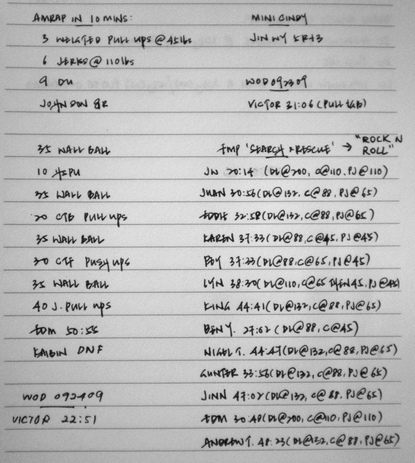 AMRAP IN 10 MINS:
3 WEIGTED PULL UPS @ 45lbs
6 JERKS @ 110lbs
9 DU
JOHNSON 8R
35 WALL BALL
10 HSPU
35 WALL BALL
20 CTB PULL UPS
35 WALL BALL
30 CTF PUSH UPS
35 WALL BALL
40 J. PULL UPS
EDM 50:55
DNF
WOD 092409
VICTOR 22:51
MINI CINDY
JIN NY 5R+3
WOD 092309
VICTOR 31:06 (PULL
FMP 'SEARCH + RESCUE' → "ROCK N ROLL"
JN 20:14 (DL@200, C@110, PJ@110)
JUAN 30:56 (DL@132, C@88, PJ@65)
EDDIE 32:58 (DL@132, C@88, PJ@65)
KAREN 37:33 (DL@88, C@45, PJ@45)
ROY 37:33 (DL@88, C@65, PJ@65)
LYN 38:30 (DL@110, C@65
KING 44:41 (DL@132, C@88, PJ@65)
BEN Y. 27:62 (DL@88, C@45)
NIGEL T. 44:47 (DL@132, C@88, PJ@65)
GUNTER 33:56 (DL@132, C@88, PJ@65)
JINN 47:02 (DL@132, C@88, PJ@65)
EDM 30:48 (DL@200, C@110, PJ@110)
ANDREW T. 48:23 (DL@132, C@88, PJ@65)